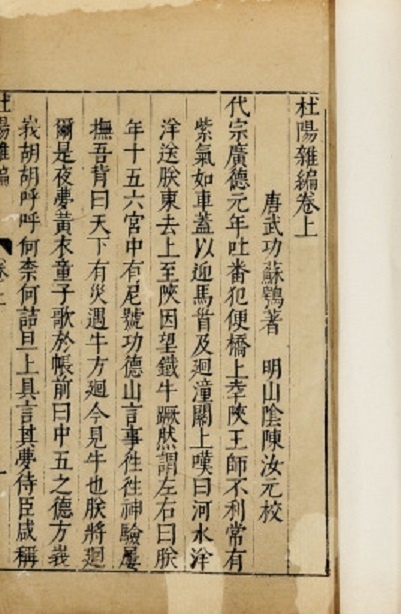 杜陽雜編卷上
唐武功蘇鶚著　明山陰陳汝元校
代宗廣德元年吐番犯便橋上幸陜王師不利常有
紫氣如車蓋以迎馬首及迴潼關上嘆曰河水洋
洋送朕東去上至陜因望鐵牛蹶然謂左右曰朕
年十五六宮中有尼號功德山言事徃徃神驗屢
撫吾背曰天下有災遇牛方迴今見牛也朕將迴
爾是夜夢黃衣童子歌於帳前曰中五之德方峩
峩胡胡呼呼何柰何詰旦上具言其夢侍臣咸稱
杜陽雜編
卷上
一